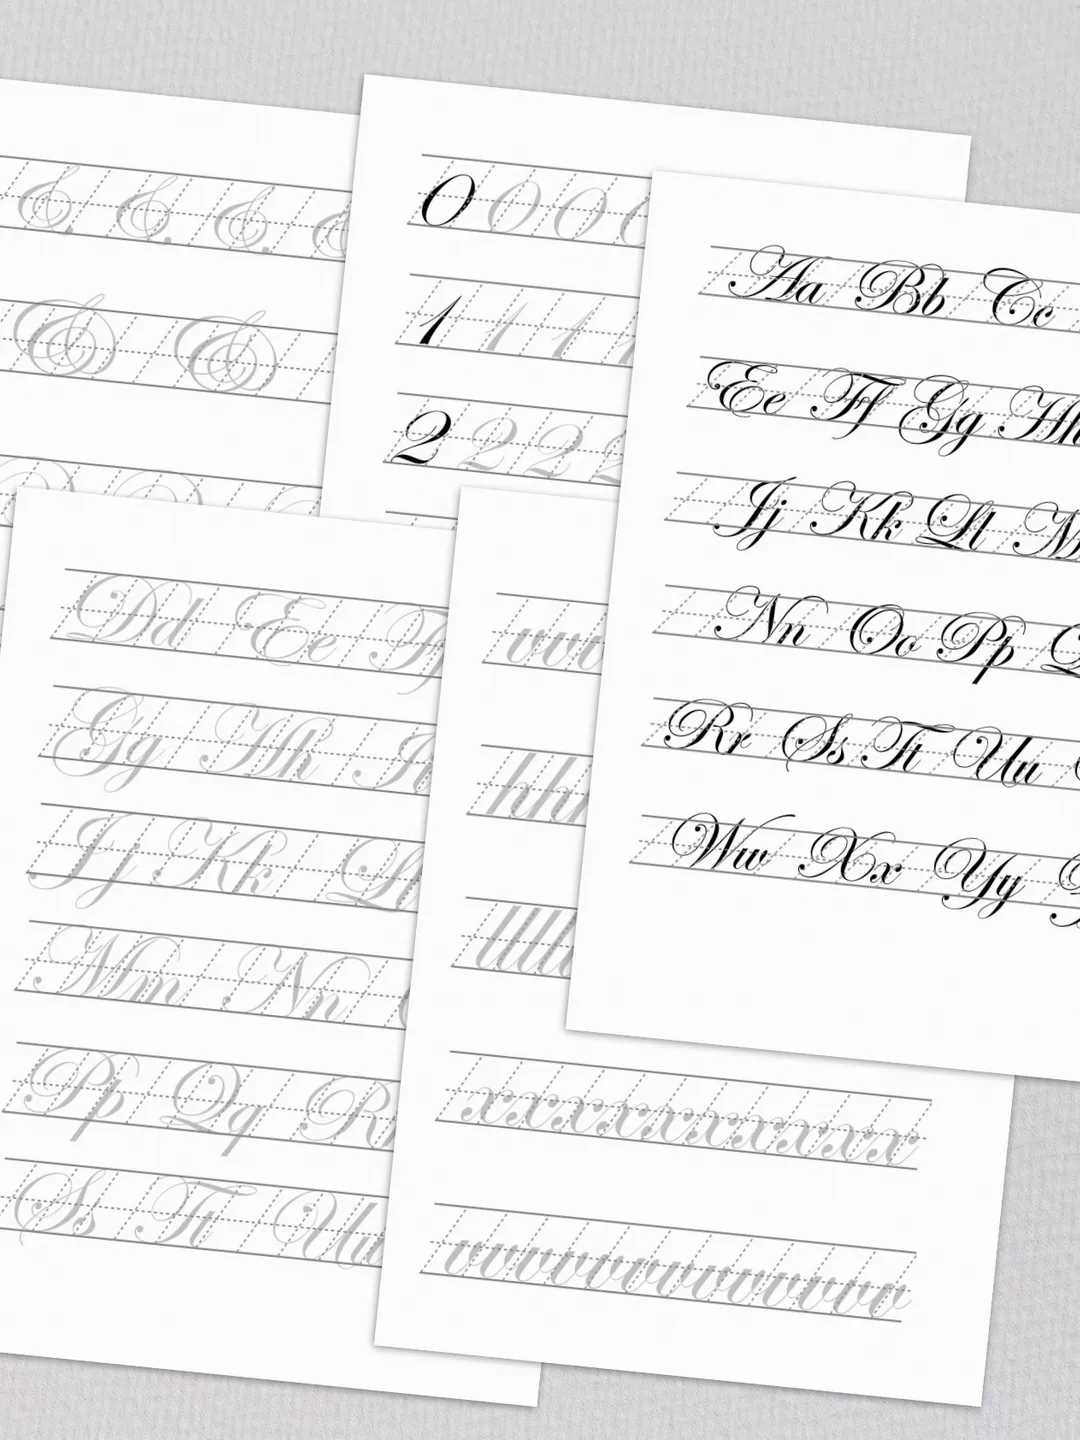 & & &
& &
0 0 0 0
1 1 1 1
2 2 2 2
Aa Bb Cc
Ee Ff Gg Hh
Jj Kk Ll M
Nn Oo Pp Q
Rr Ss Tt Uu
Ww Xx Yy
Dd Ee
Gg Hh
Jj Kk Ll
Mm Nn
Pp Qq R
Ss Tt Uu
hhh
llll
xxxxxxxxxx